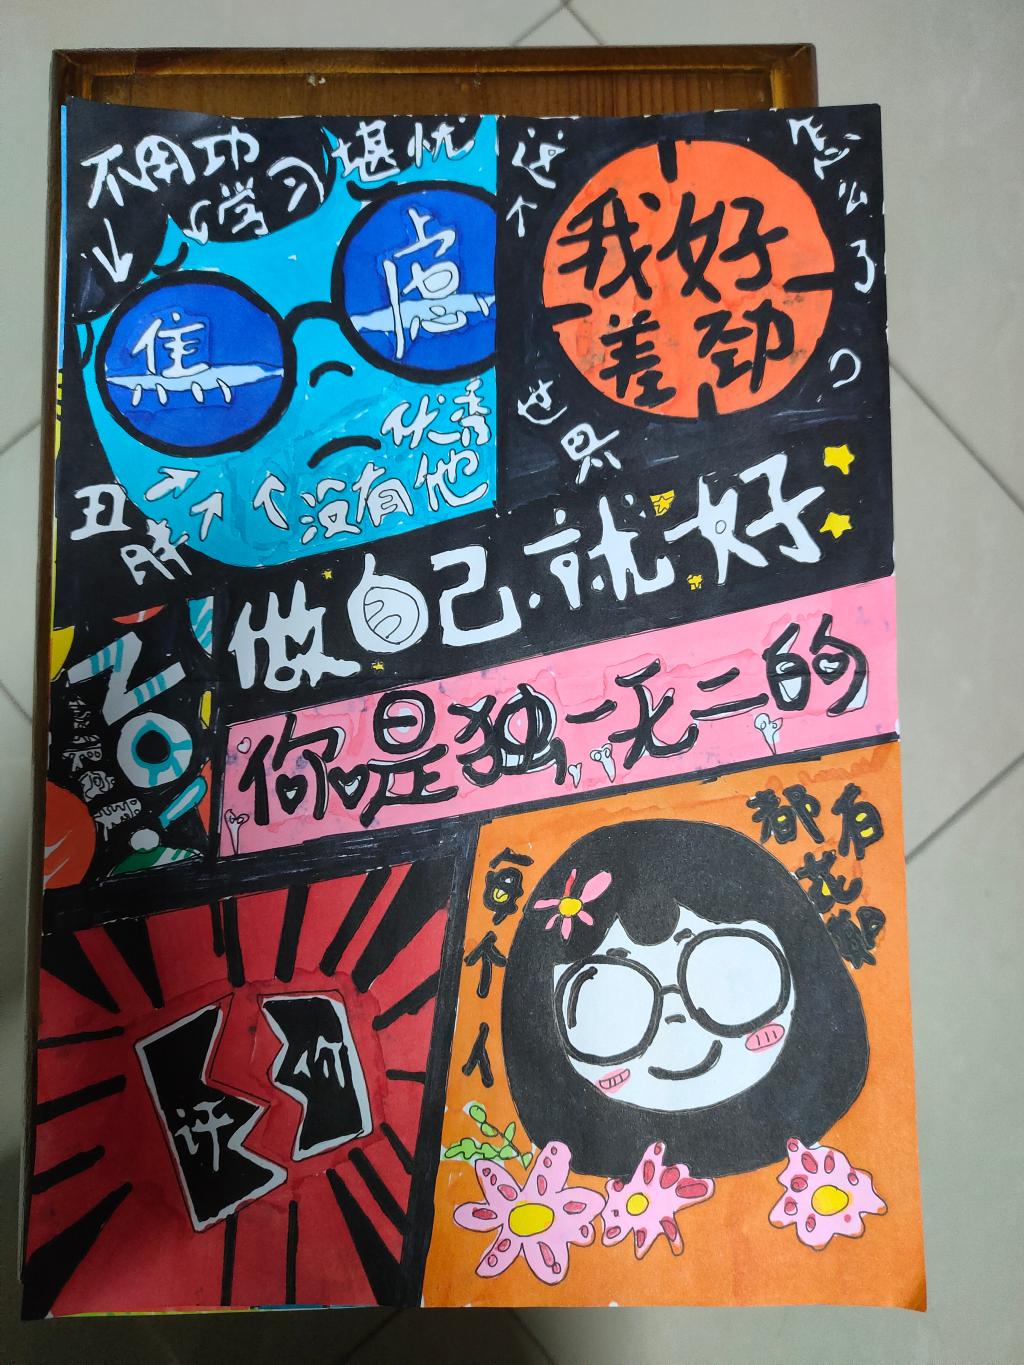 不用功
学习
堪忧
焦虑
优秀
没有他
丑
胖
这个
世界
怎么了
我好
差劲
做自己就好
NO
你是独一无二的
评价
每个人
都有
花期